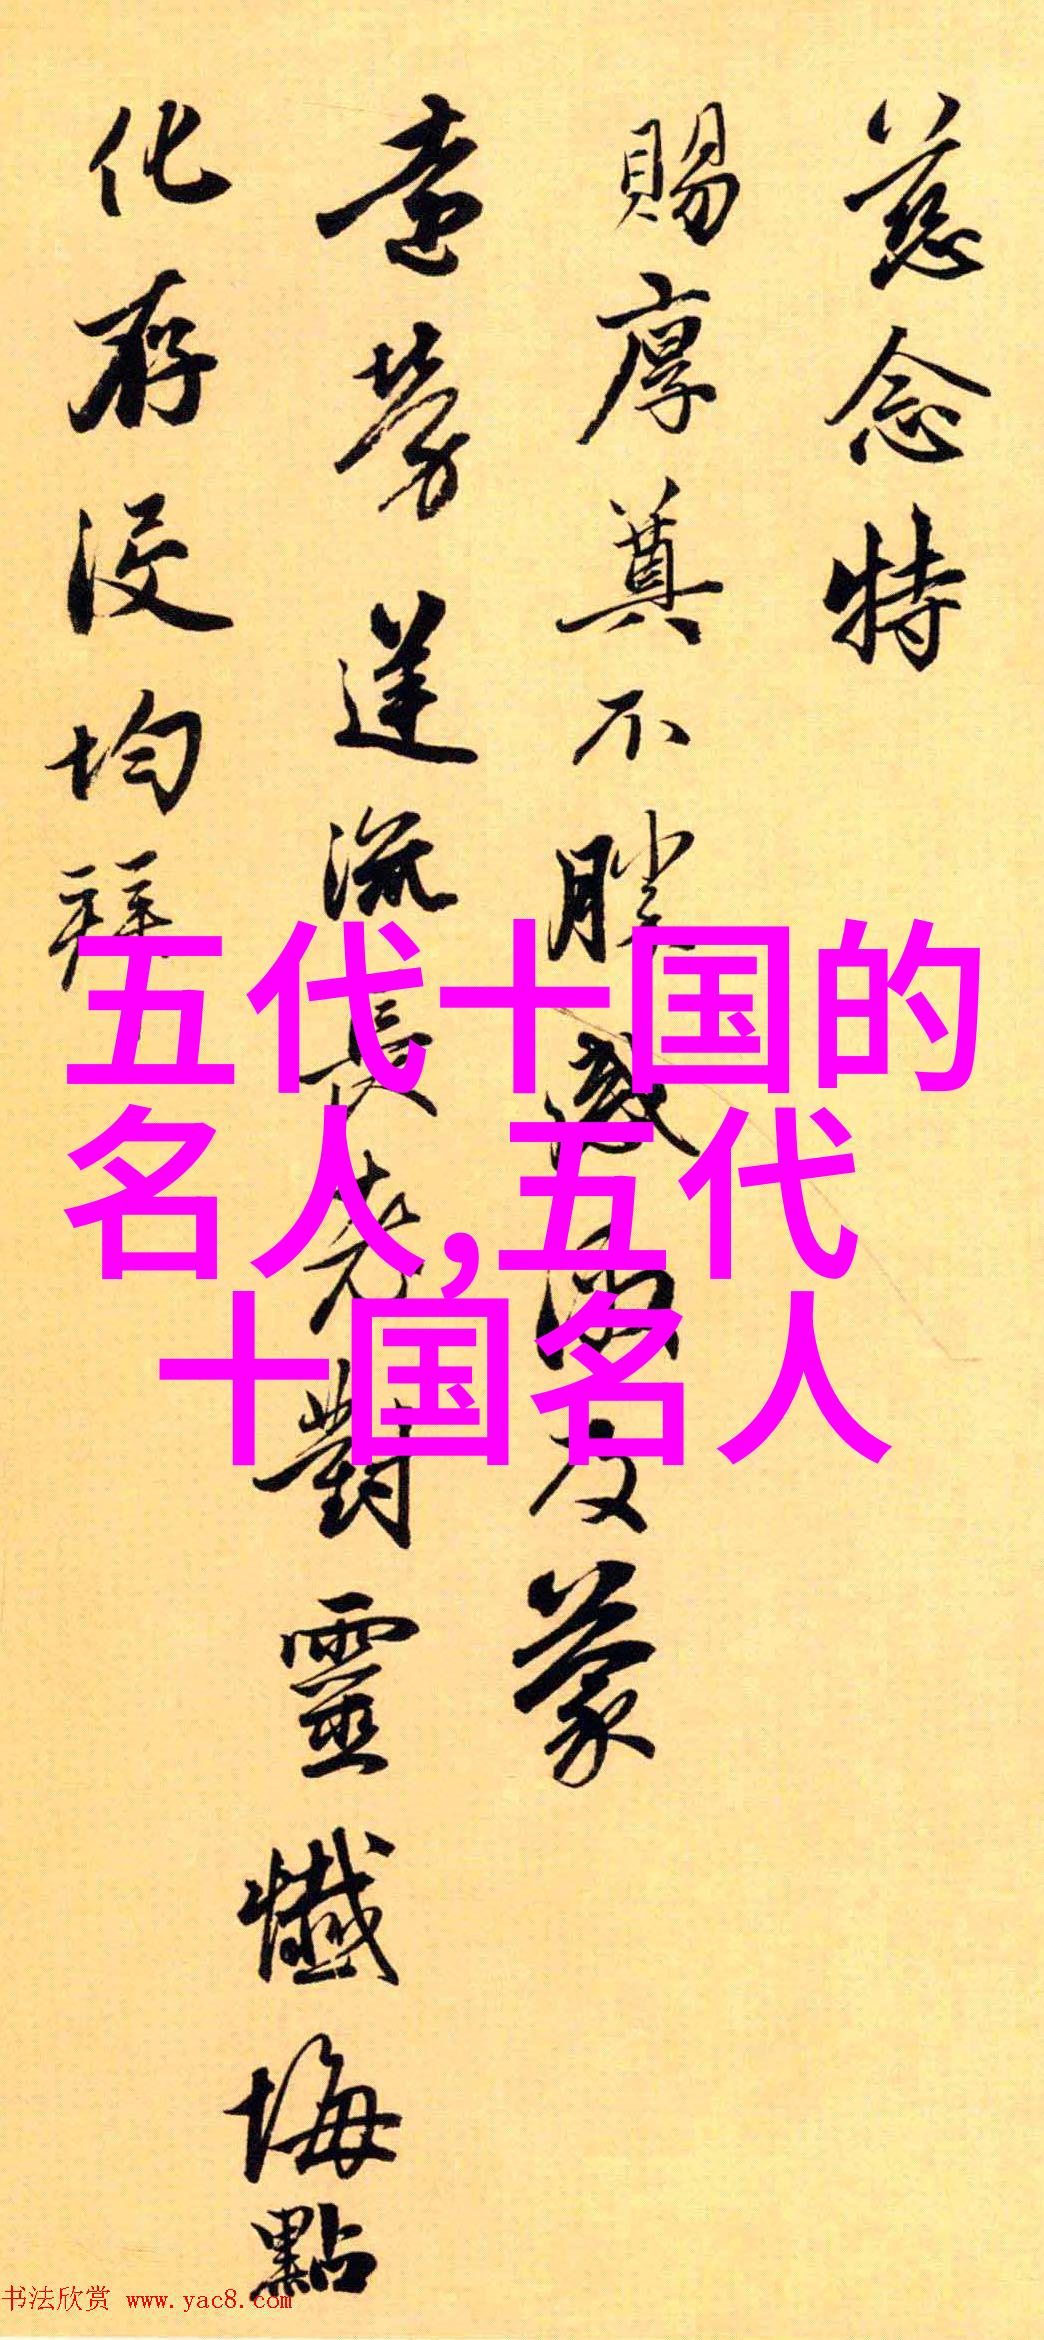 慈念特
賜厚奠不勝感及蒙
遠勞流長老對靈懺悔點
化存没均拜
五代十国的
名人,五代
十国名人
书法欣赏 www.yac8.com